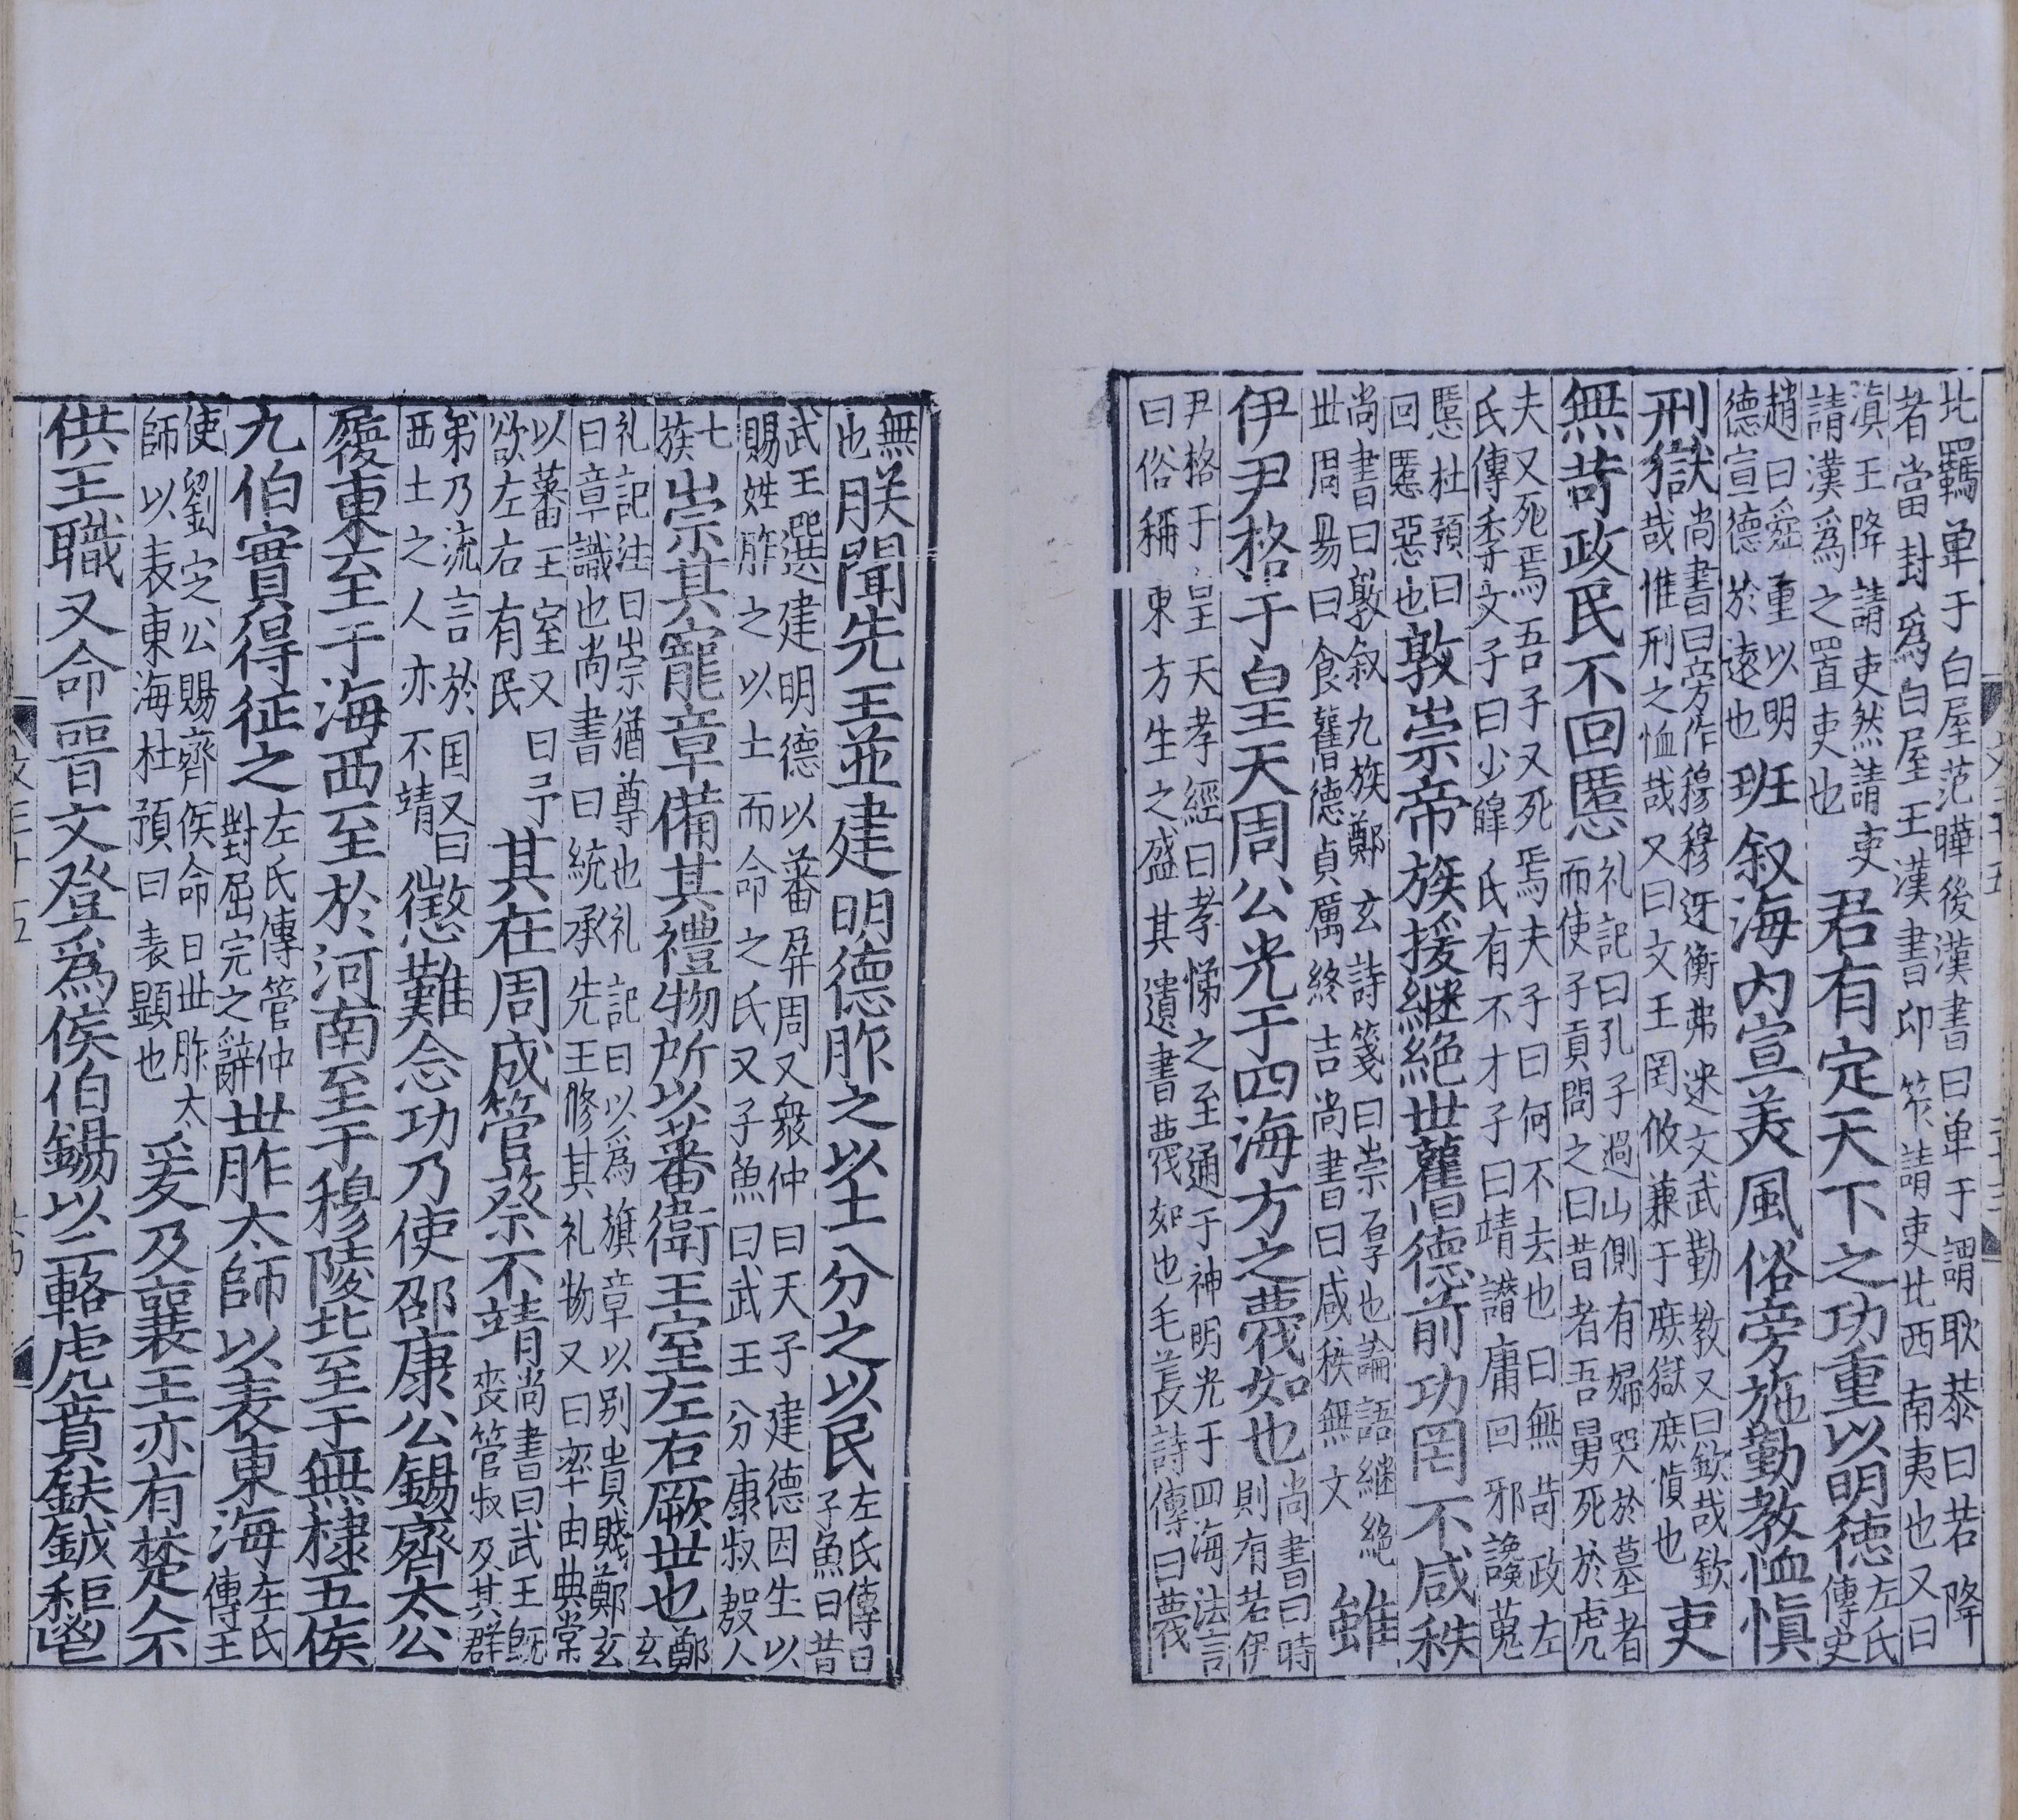 北羈單于白屋范曄後漢書曰單于謂耿恭曰若降
者當封爲白屋王漢書卬笮請吏比西南夷也又曰
滇王降請吏然請吏
請漢爲之置吏也
君有定天下之功重以明德
左氏
傳史
趙曰舜重以明
德宣德於遠也
班叙海内宣美風俗旁施勤教恤愼
刑獄
尚書曰旁作穆穆迓衡弗迷文武勤教又曰欽哉欽
哉惟刑之恤哉又曰文王罔攸兼于庶獄庶愼也
吏
無苛政民不回慝
礼記曰孔子過山側有婦哭於墓者
而使子貢問之曰昔者吾舅死於虎
夫又死焉吾子又死焉夫子曰何不去也曰無苛政左
氏傳季文子曰少皡氏有不才子曰靖譖庸回邪讒蒐
慝杜預曰
回慝惡也
敦崇帝族援継絶世舊德前功罔不咸秩
尚書曰敦叙九族鄭玄詩箋曰崇厚也論語継絶
世周易曰食舊德貞厲終吉尚書曰咸秩無文
雖
伊尹格于皇天周公光于四海方之蔑如也
尚書曰時
則有若伊
尹格于皇天孝經曰孝悌之至通于神明光于四海法言
曰俗稱東方生之盛其遺書蔑如也毛萇詩傳曰蔑
無
也
朕聞先王並建明德胙之以土分之以民
左氏傳曰
子魚曰昔
武王選建明德以蕃屏周又衆仲曰天子建德因生以
賜姓胙之以土而命之氏又子魚曰武王分康叔殷人
七
族
崇其寵章備其禮物所以蕃衛王室左右厥世也
鄭
玄
礼記注曰崇猶尊也礼記曰以爲旗章以别貴賤鄭玄
曰章識也尚書曰統承先王修其礼物又曰率由典常
以蕃王室又曰予
欲左右有民
其在周成管蔡不靖
尚書曰武王旣
喪管叔及其群
弟乃流言於国又曰
西土之人亦不靖
懲難念功乃使邵康公錫齊太公
履東至于海西至於河南至于穆陵北至于無棣五侯
九伯實得征之
左氏傳管仲
對屈完之辭
世胙太師以表東海
左氏
傳王
使劉定公賜齊侯命曰世胙太
師以表東海杜預曰表顯也
爰及襄王亦有楚人不
供王職又命晋文登爲侯伯錫以二輅虎賁鈇鉞秬鬯